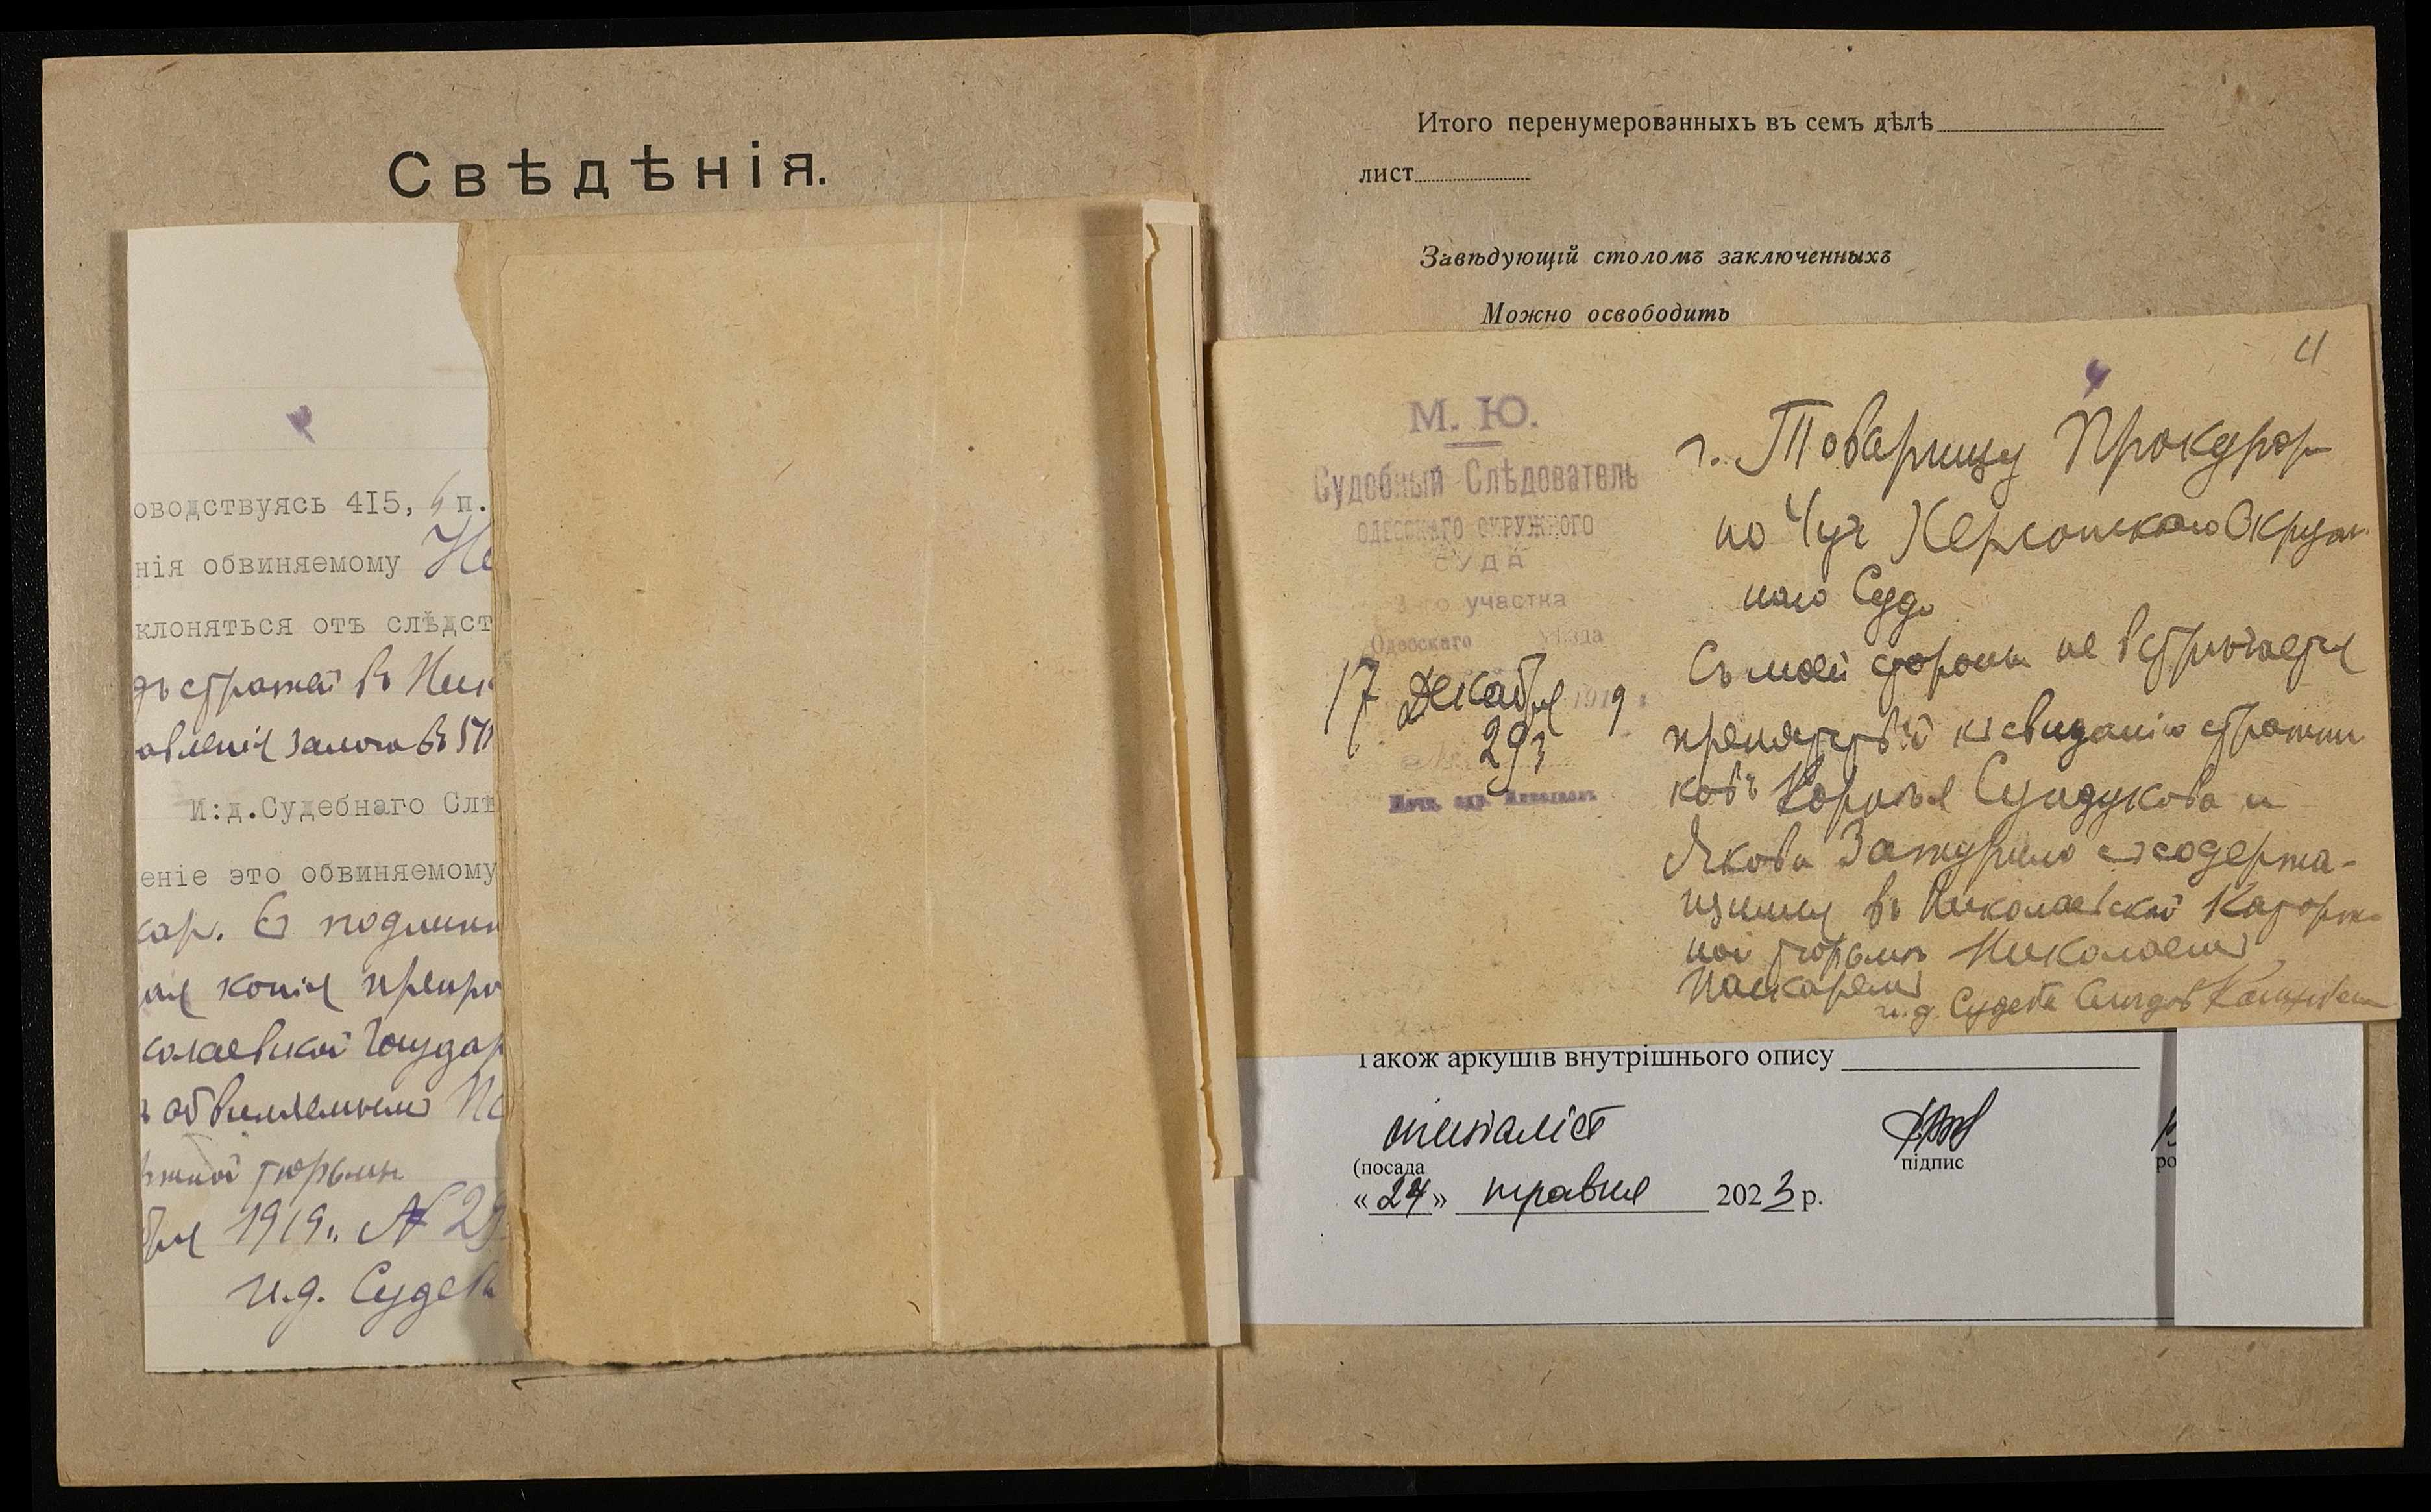 Свѣдѣнія.
оводствуясь 415, 6 п.
нія обвиняемому
клоняться отъ слѣдст
дъ стражей въ Ник
овленія залога въ 5
И:д.Судебнаго Слѣ
еніе это обвиняемому
кар. Съ подлинн
ная копія препро
колаевской Государ
ъ обвиняемымъ Па
ржной тюрьмѣ
бря 1919 г. № 29
и.д. Судебн
Итого перенумерованныхъ въ семъ дѣлѣ
лист
Завѣдующій столомъ заключенныхъ
Можно освободить
4
М. Ю.
Судебный Слѣдователь
ОДЕССКАГО ОКРУЖНОГО
СУДА
3-го участка
Одесскаго уѣзда
17 Декабря 1919 г.
293
г. Товарищу Прокурор
по уч Херсонскаго Окруж
наго Суда
Съ моей стороны не встрѣчается
препятствій къ свиданію стражни
ковъ Корнѣя Сундукова и
Якова съ содержа-
щимся въ Николаевской Каторж
ной тюрьмѣ Николаемъ
Паскаремъ
и.д. Судебн Слѣдов
Також аркушів внутрішнього опису
спеціаліст
(посада
підпис
ро
«24» травня 2023 р.